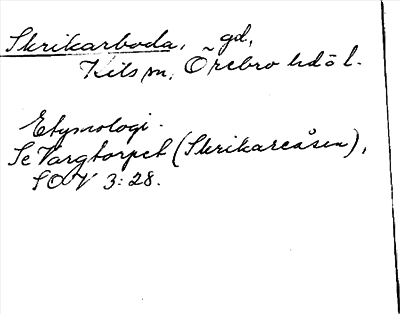 Skrikarboda, gd,
Kils sn, Örebro hd ö l.
Etymologi.
Se Vargtorpet (Skrikareåsen),
SOV 3:28.